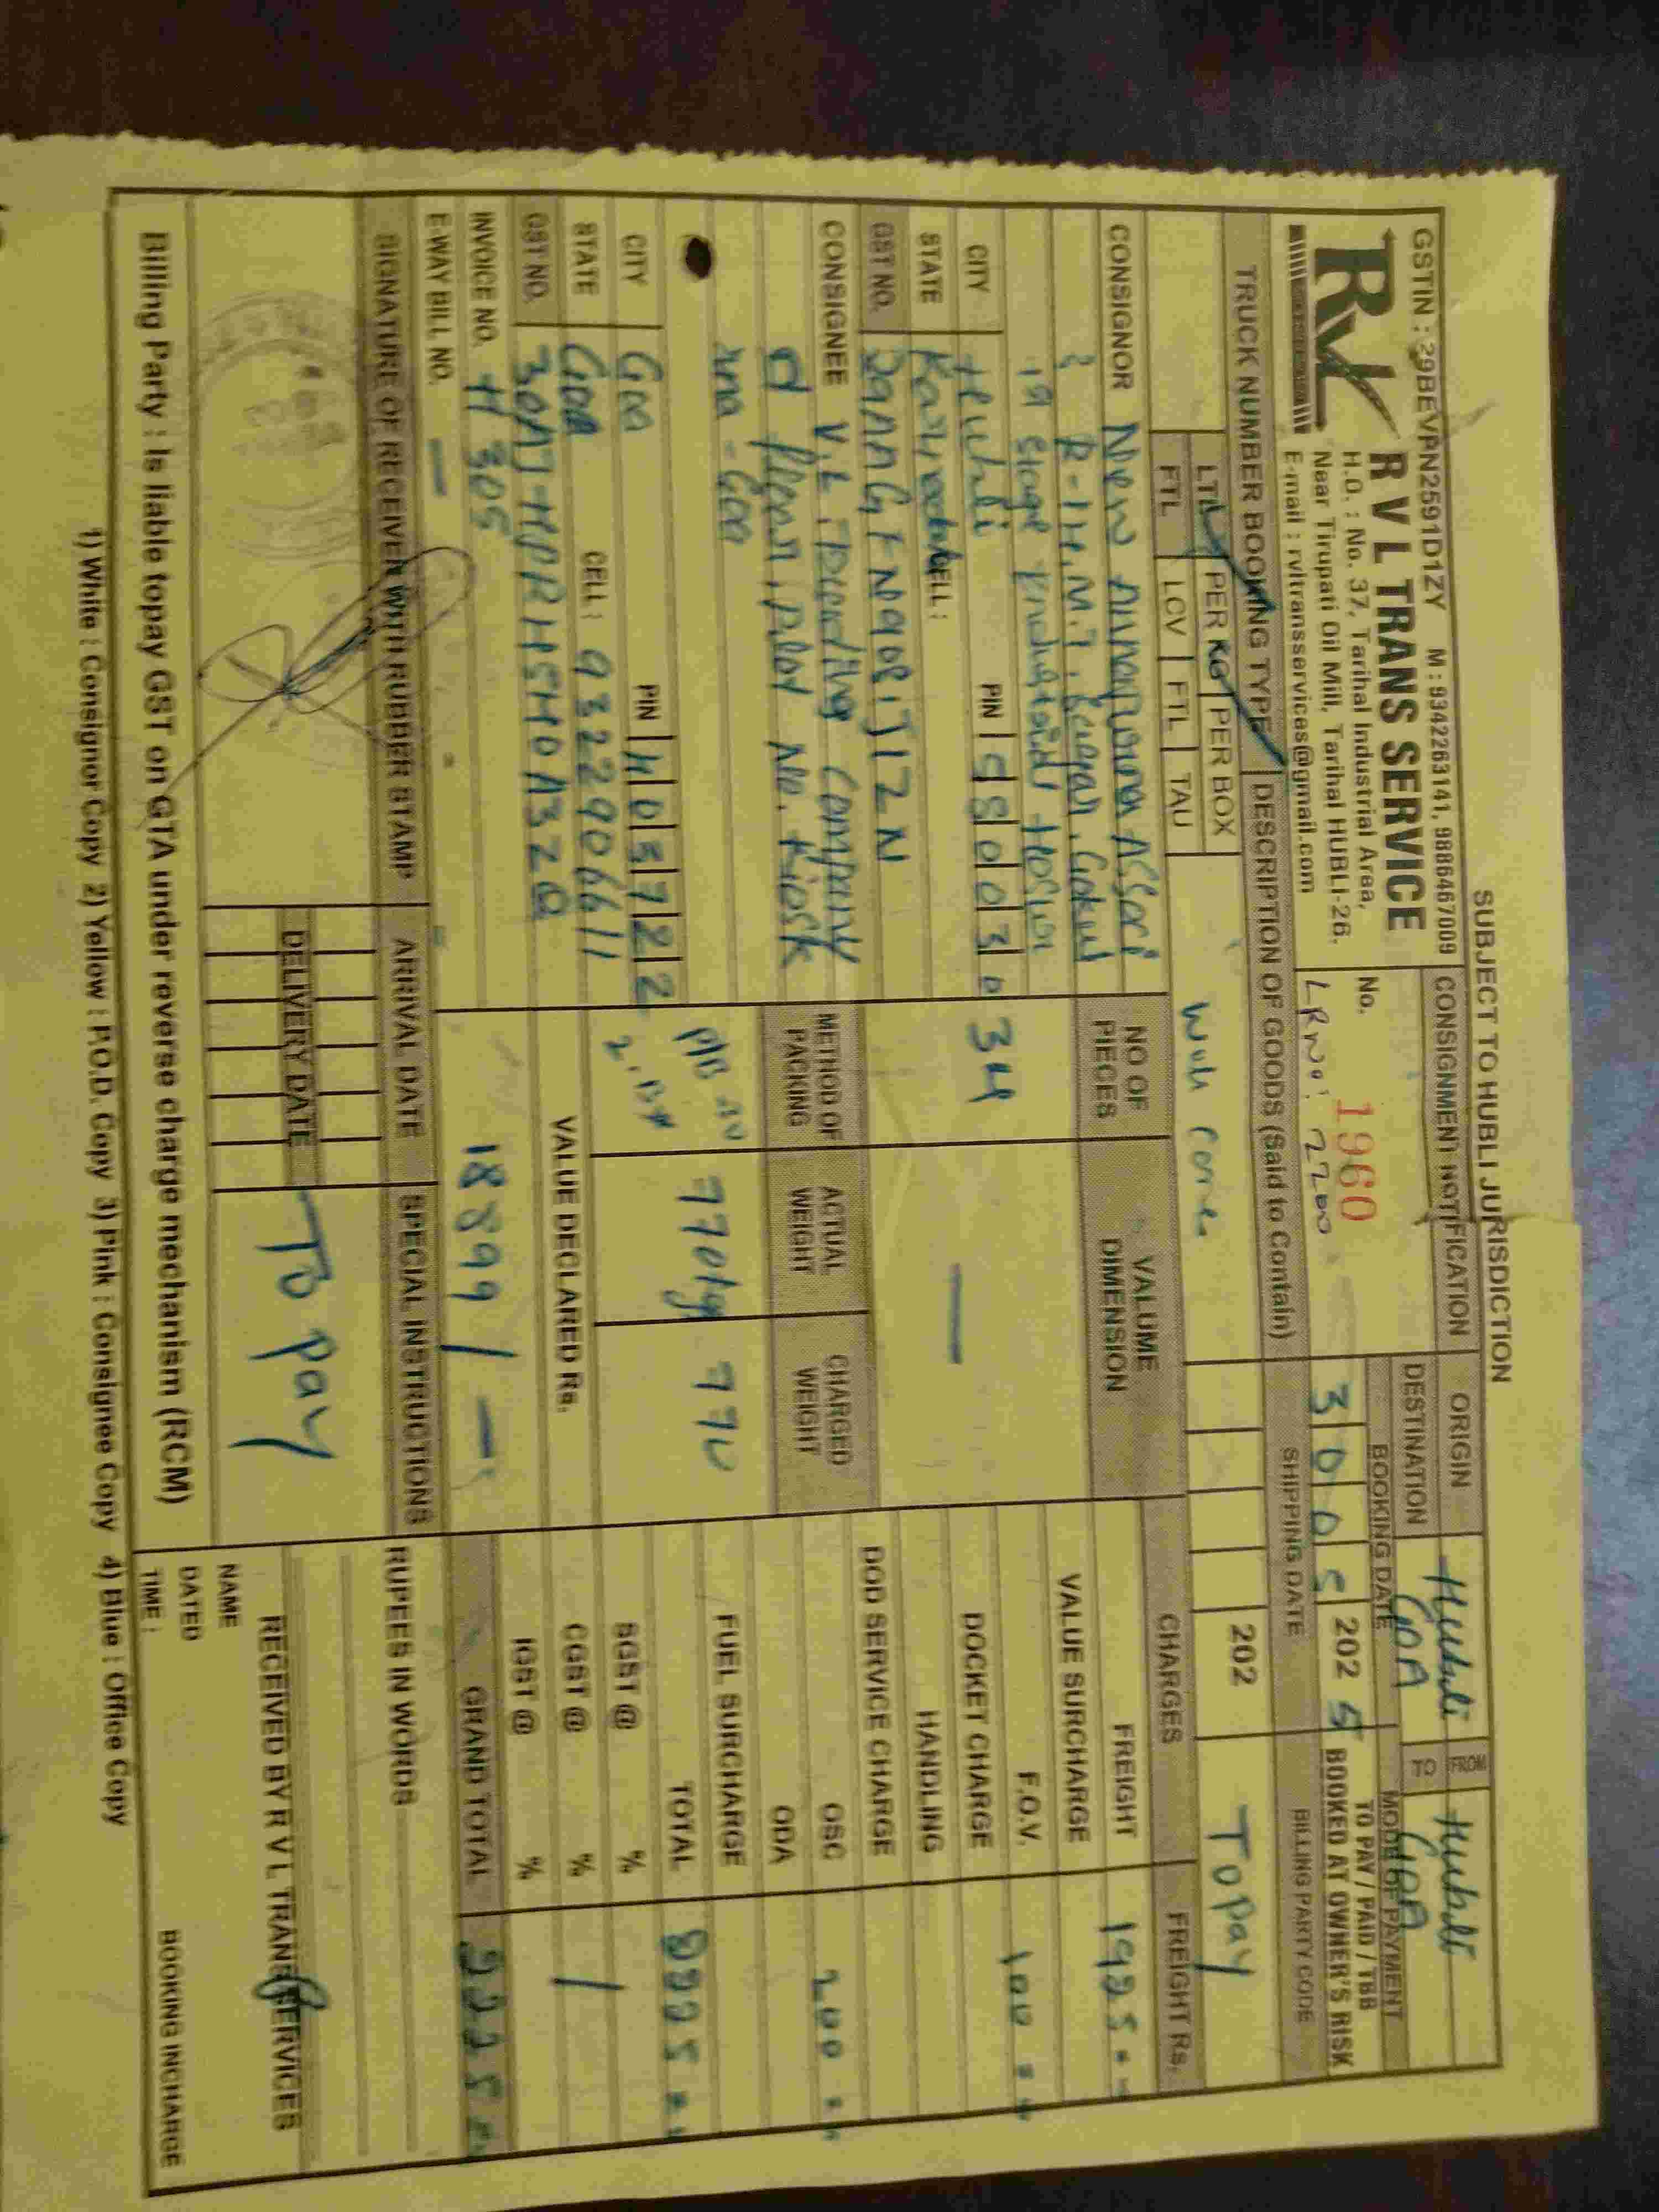 SUBJECT TO HUBLI JURISDICTION
GSTIN : 29BEVPN2591D1ZY M : 9342263141, 9886467009
RVL
R V L TRANS SERVICE
H.O. : No. 37, Tarihal Industrial Area,
Near Tirupati Oil Mill, Tarihal HUBLI-26.
E-mail : rvltransservices@gmail.com
CONSIGNMENT NOTIFICATION
No. 1960
LR No: 2200
ORIGIN Hubli FROM Hubli
DESTINATION GOA TO GOA
BOOKING DATE 30 05 2025
SHIPPING DATE 202
MODE OF PAYMENT
TO PAY / PAID / TBB
BOOKED AT OWNER'S RISK
BILLING PARTY CODE
To pay
TRUCK NUMBER BOOKING TYPE
LTL PER KG PER BOX
FTL LCV FTL TAU
DESCRIPTION OF GOODS (Said to Contain)
CONSIGNOR New Annapurna
CITY Hubli PIN 580030
STATE Karnataka CELL :
GST NO.
CONSIGNEE V.L. Company
Plot No. Kiosk
Goa
CITY Goa PIN 405722
STATE Goa CELL : 9322906611
GST NO.
INVOICE NO. H 305
E-WAY BILL NO. —
NO OF PIECES VALUME DIMENSION
34 —
METHOD OF PACKING ACTUAL WEIGHT CHARGED WEIGHT
770kg 770
VALUE DECLARED Rs.
18899/-
CHARGES FREIGHT Rs.
FREIGHT 1925
VALUE SURCHARGE
F.O.V. 100
DOCKET CHARGE
HANDLING
DOD SERVICE CHARGE
OSC 200
ODA
FUEL SURCHARGE
TOTAL 2225
SGST @ %
CGST @ %
IGST @ %
GRAND TOTAL 2225
RUPEES IN WORDS
SIGNATURE OF RECEIVER WITH RUBBER STAMP
ARRIVAL DATE
DELIVERY DATE
SPECIAL INSTRUCTIONS
To pay
RECEIVED BY R V L TRANS SERVICES
NAME
DATED
TIME : BOOKING INCHARGE
Billing Party : Is liable topay GST on GTA under reverse charge mechanism (RCM)
1) White : Consignor Copy 2) Yellow : P.O.D. Copy 3) Pink : Consignee Copy 4) Blue : Office Copy